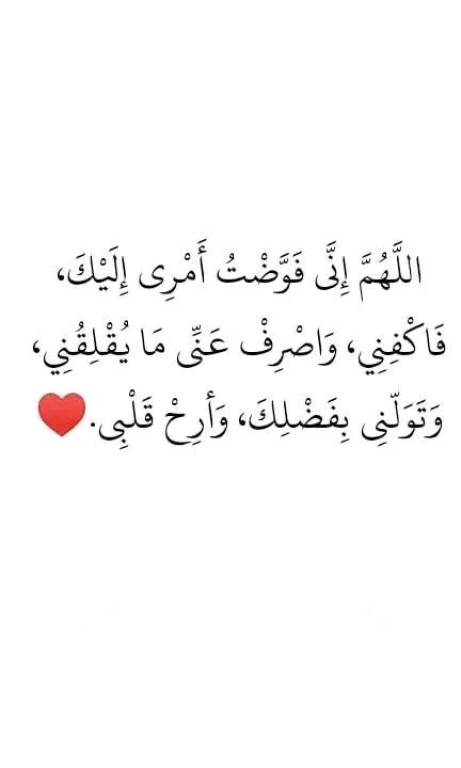 اللَّهُمَّ إِنَّى فَوَّضْتُ أَمْرِى إِلَيْكَ،
فَاكْفِنِي، وَاصْرِفْ عَنِّى مَا يُقْلِقُنِي،
وَتَوَلّنِى بِفَضْلِكَ، وَأرِحْ قَلْبِى.❤️